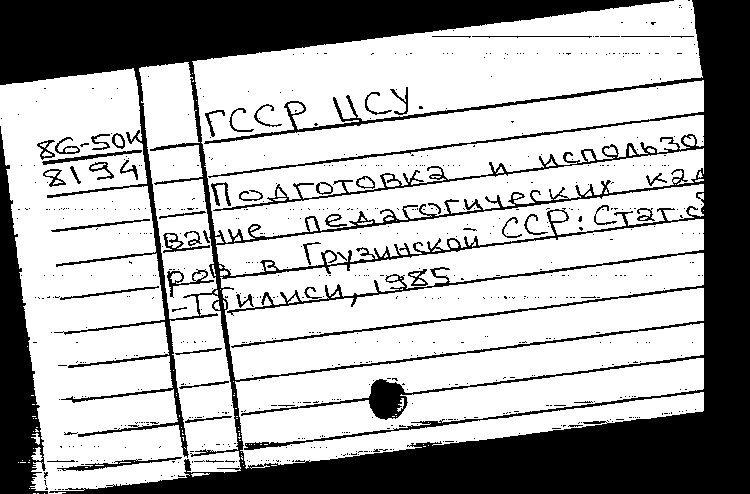 ГССР. ЦСУ.
86-50к
8194
Подготовка и использо
вание педагогических кад
ров в Грузинской ССР: Стат. сб
-Тбилиси, 1985.